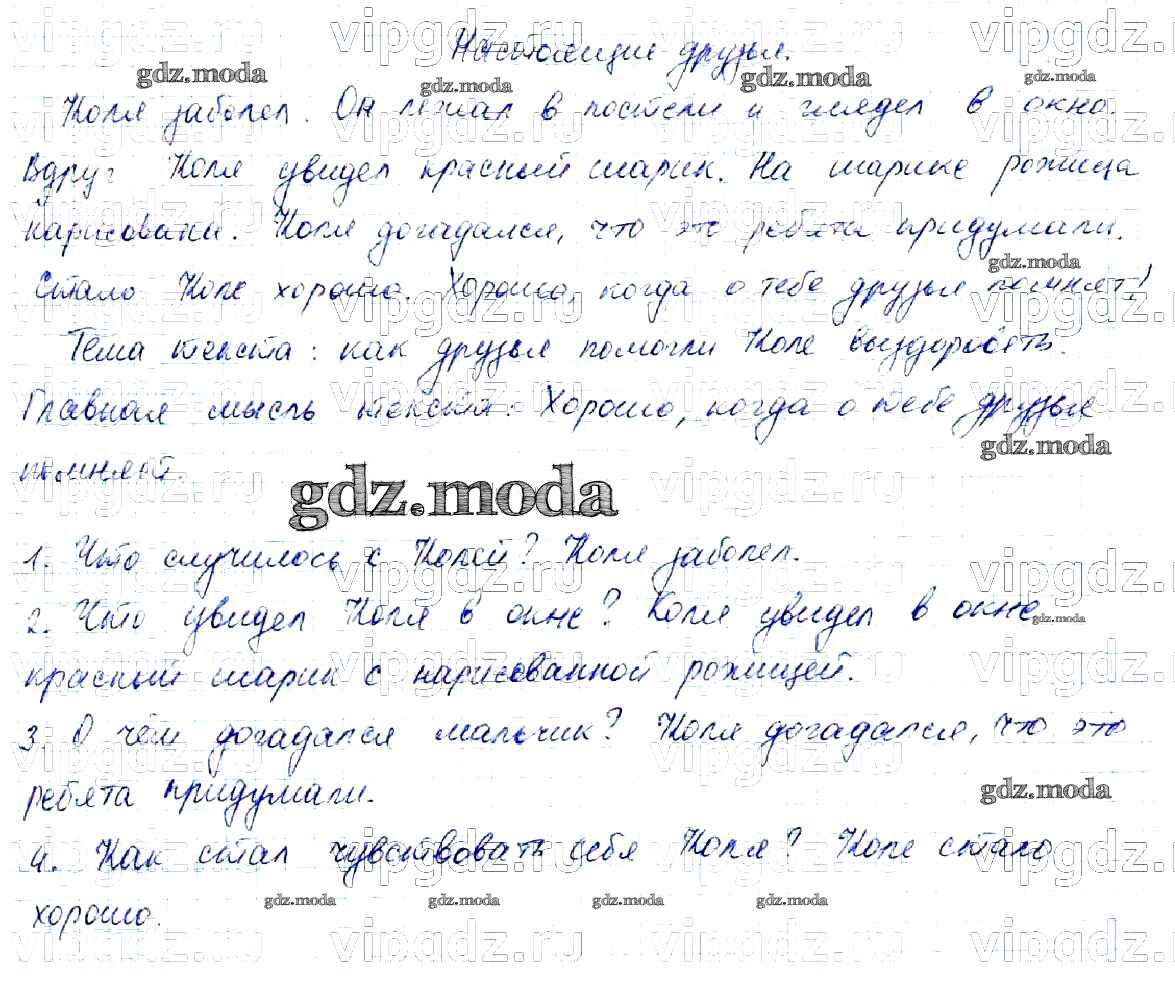 Настоящие друзья.
Коля заболел. Он лежал в постели и глядел в окно.
Вдруг Коля увидел красный шарик. На шарике рожица
нарисована. Коля догадался, что это ребята придумали.
Стало Коле хорошо. Хорошо, когда о тебе друзья помнят!
Тема текста: как друзья помогли Коле выздороветь.
Главная мысль текста: Хорошо, когда о тебе друзья
помнят.
gdz.moda
1. Что случилось с Колей? Коля заболел.
2. Что увидел Коля в окне? Коля увидел в окне
красный шарик с нарисованной рожицей.
3. О чём догадался мальчик? Коля догадался, что это
ребята придумали.
4. Как стал чувствовать себя Коля? Коле стало
хорошо.
gdz.moda gdz.moda gdz.moda gdz.moda
vipgdz.ru vipgdz.ru vipgdz.ru